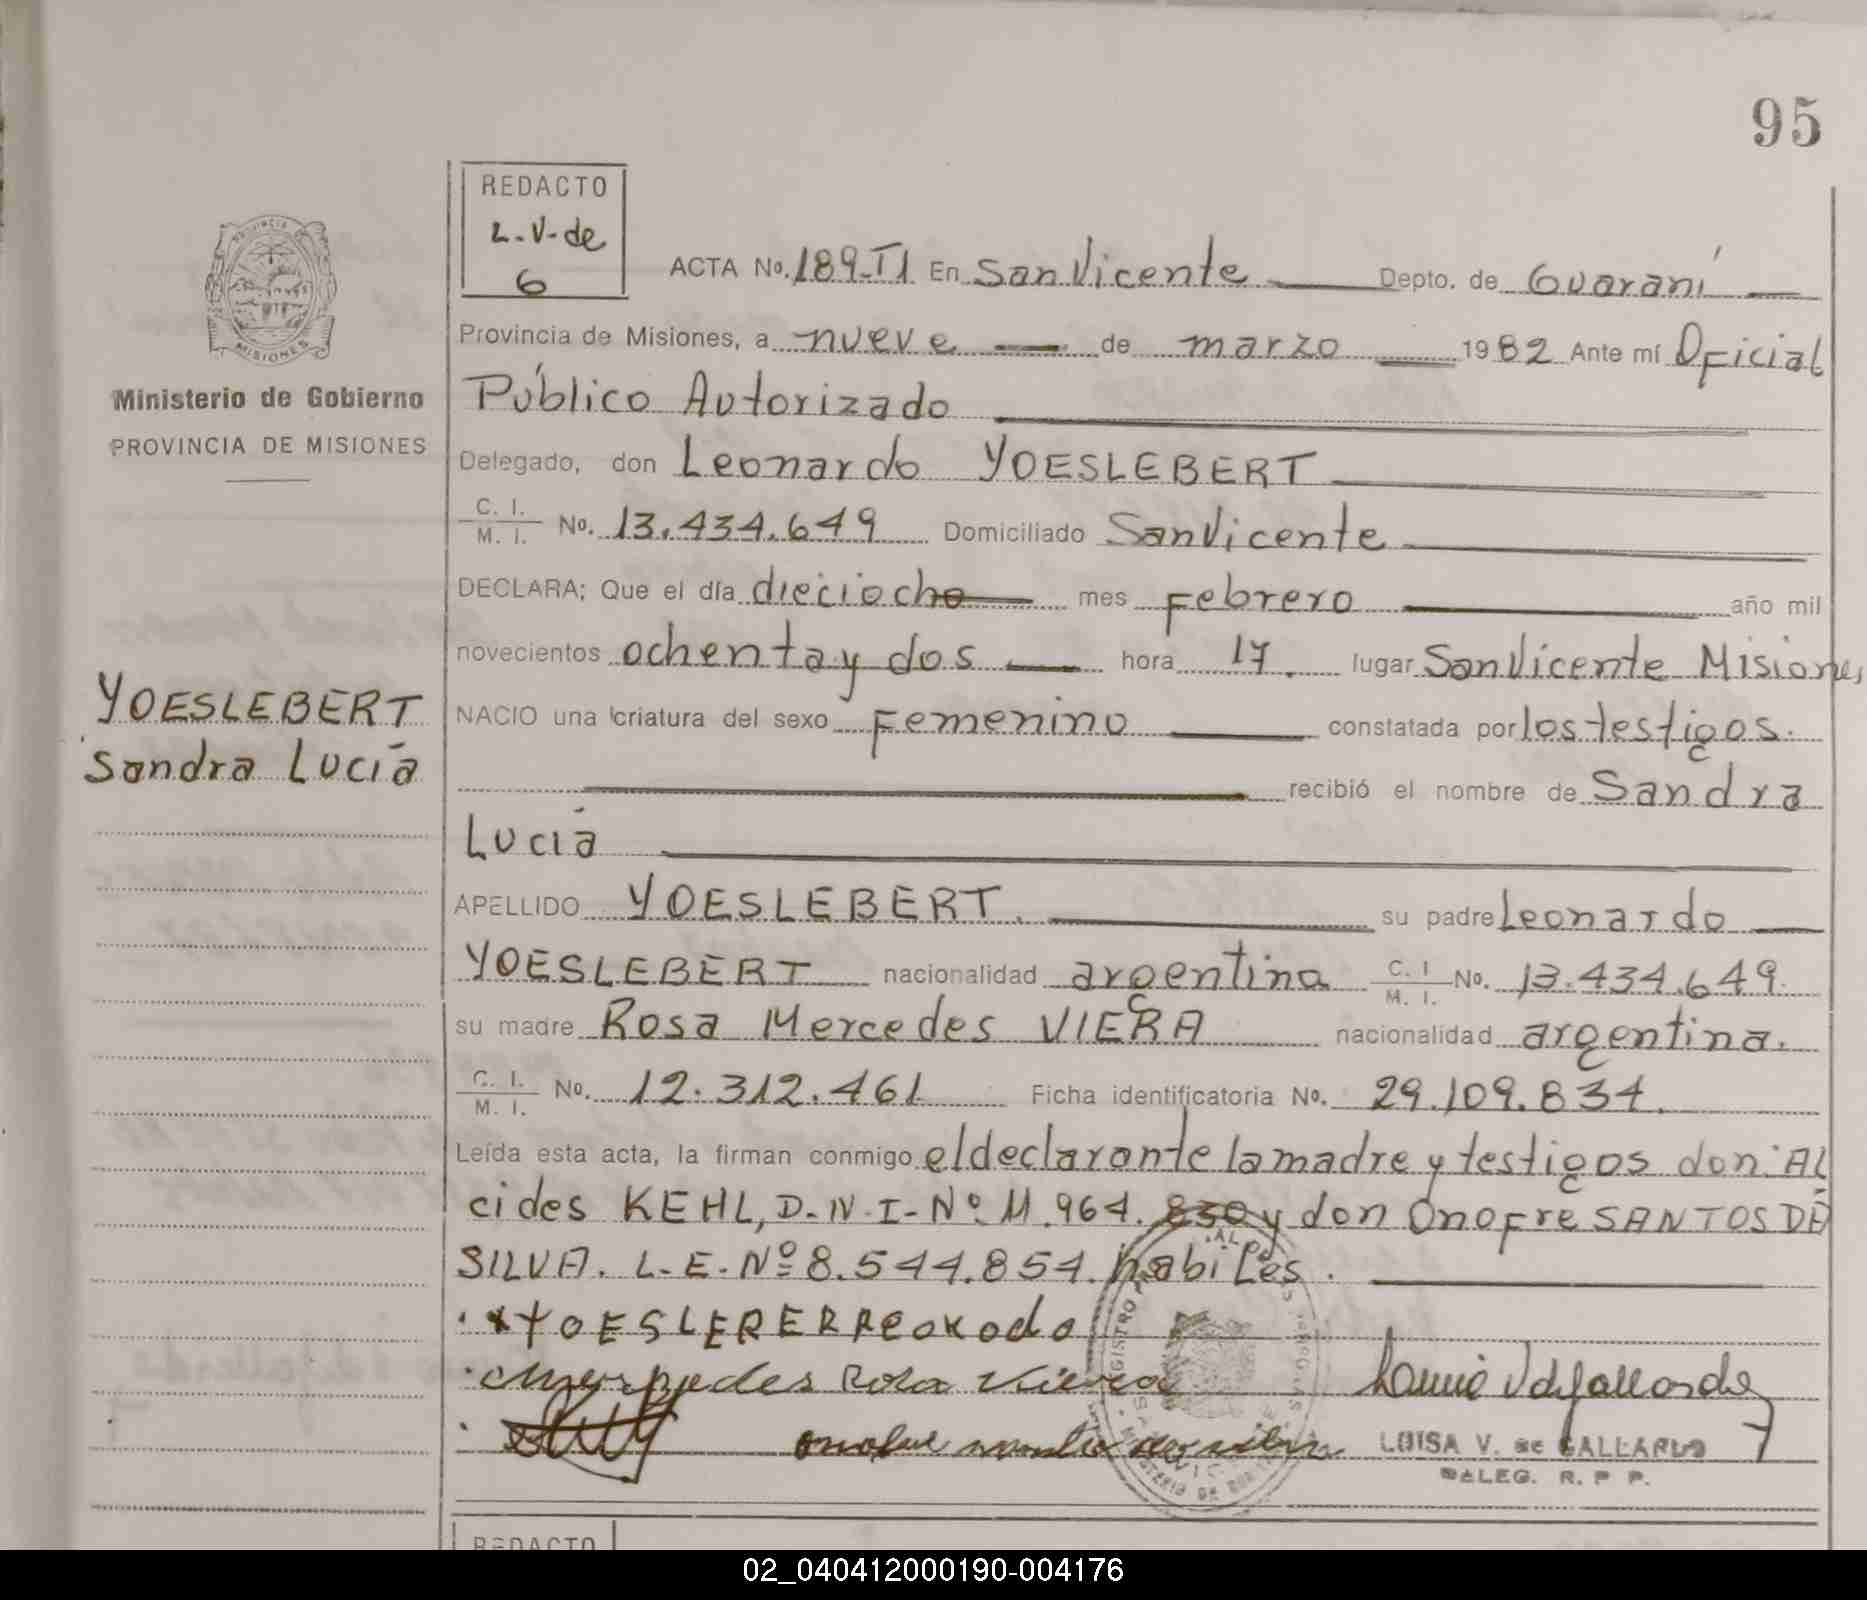 95
REDACTO
L.V. de
G
ACTA No. 189-TI En San Vicente Depto. de Guaraní
Provincia de Misiones, a nueve de marzo 1982 Ante mí Oficial
Público Autorizado
Delegado, don Leonardo YOESLEBERT
C. I.
M. I. No. 13.434.649 Domiciliado San Vicente
DECLARA; Que el día dieciocho mes Febrero año mil
novecientos ochenta y dos hora 17. lugar San Vicente Misiones
NACIO una criatura del sexo Femenino constatada por los testigos.
recibió el nombre de Sandra
Lucía
APELLIDO YOESLEBERT. su padre Leonardo
YOESLEBERT nacionalidad argentina C. I
M. I. No. 13.434.649.
su madre Rosa Mercedes VIERA nacionalidad argentina.
C. I.
M. I. No. 12.312.461 Ficha identificatoria No. 29.109.834.
Leída esta acta, la firman conmigo el declarante la madre y testigos don AL
cides KEHL, D-N-I-Nº 11.964.830 y don Onofre SANTOS DA
SILVA. L-E-Nº 8.544.854. habiles.
Ministerio de Gobierno
PROVINCIA DE MISIONES
YOESLEBERT
Sandra Lucía
PROVINCIA
MISIONES
LUISA V. de GALLARDO
DELEG. R. P P.
REDACTO
02_040412000190-004176